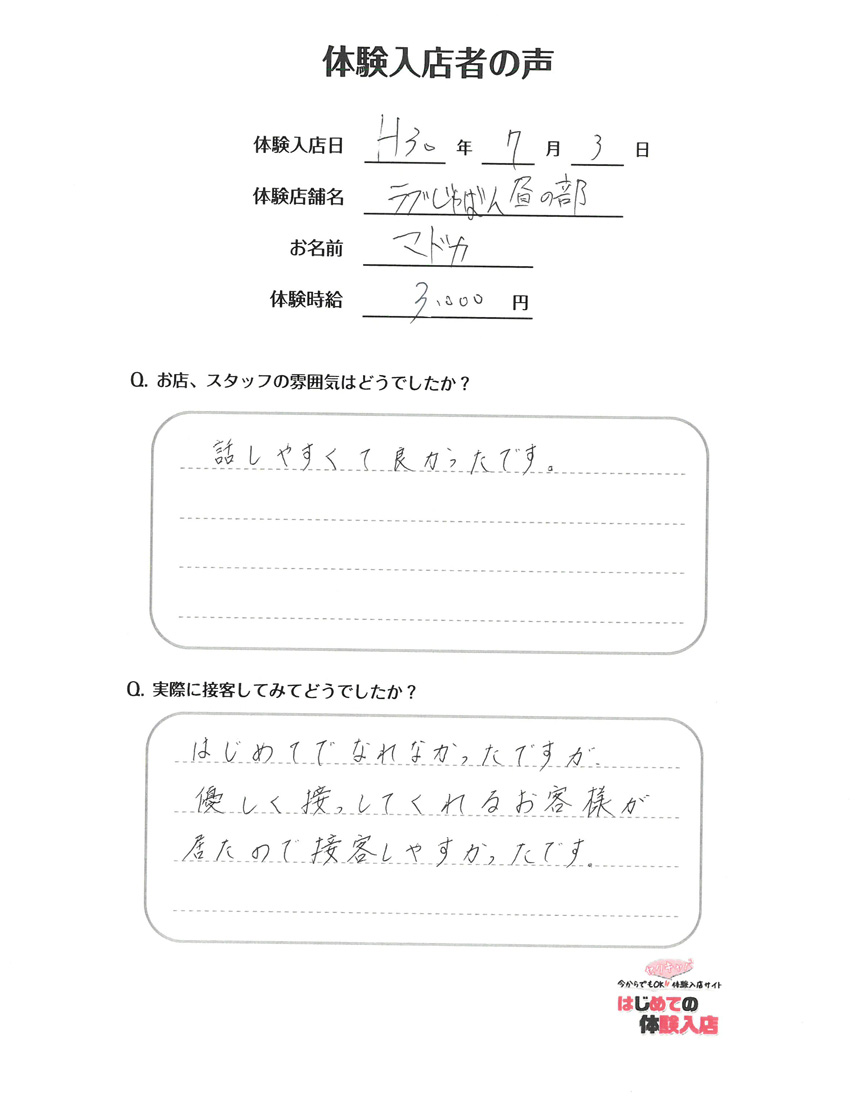 体験入店者の声
体験入店日 H30 年 7 月 3 日
体験店舗名 ラブじゃぱん 昼の部
お名前 マドカ
体験時給 3,000 円
Q. お店、スタッフの雰囲気はどうでしたか?
話しやすくて良かったです。
Q. 実際に接客してみてどうでしたか?
はじめてでなれなかったですが、
優しく接っしてくれるお客様が
居たので接客しやすかったです。
今からでもOK!! 体験入店サイト
はじめての
体験入店